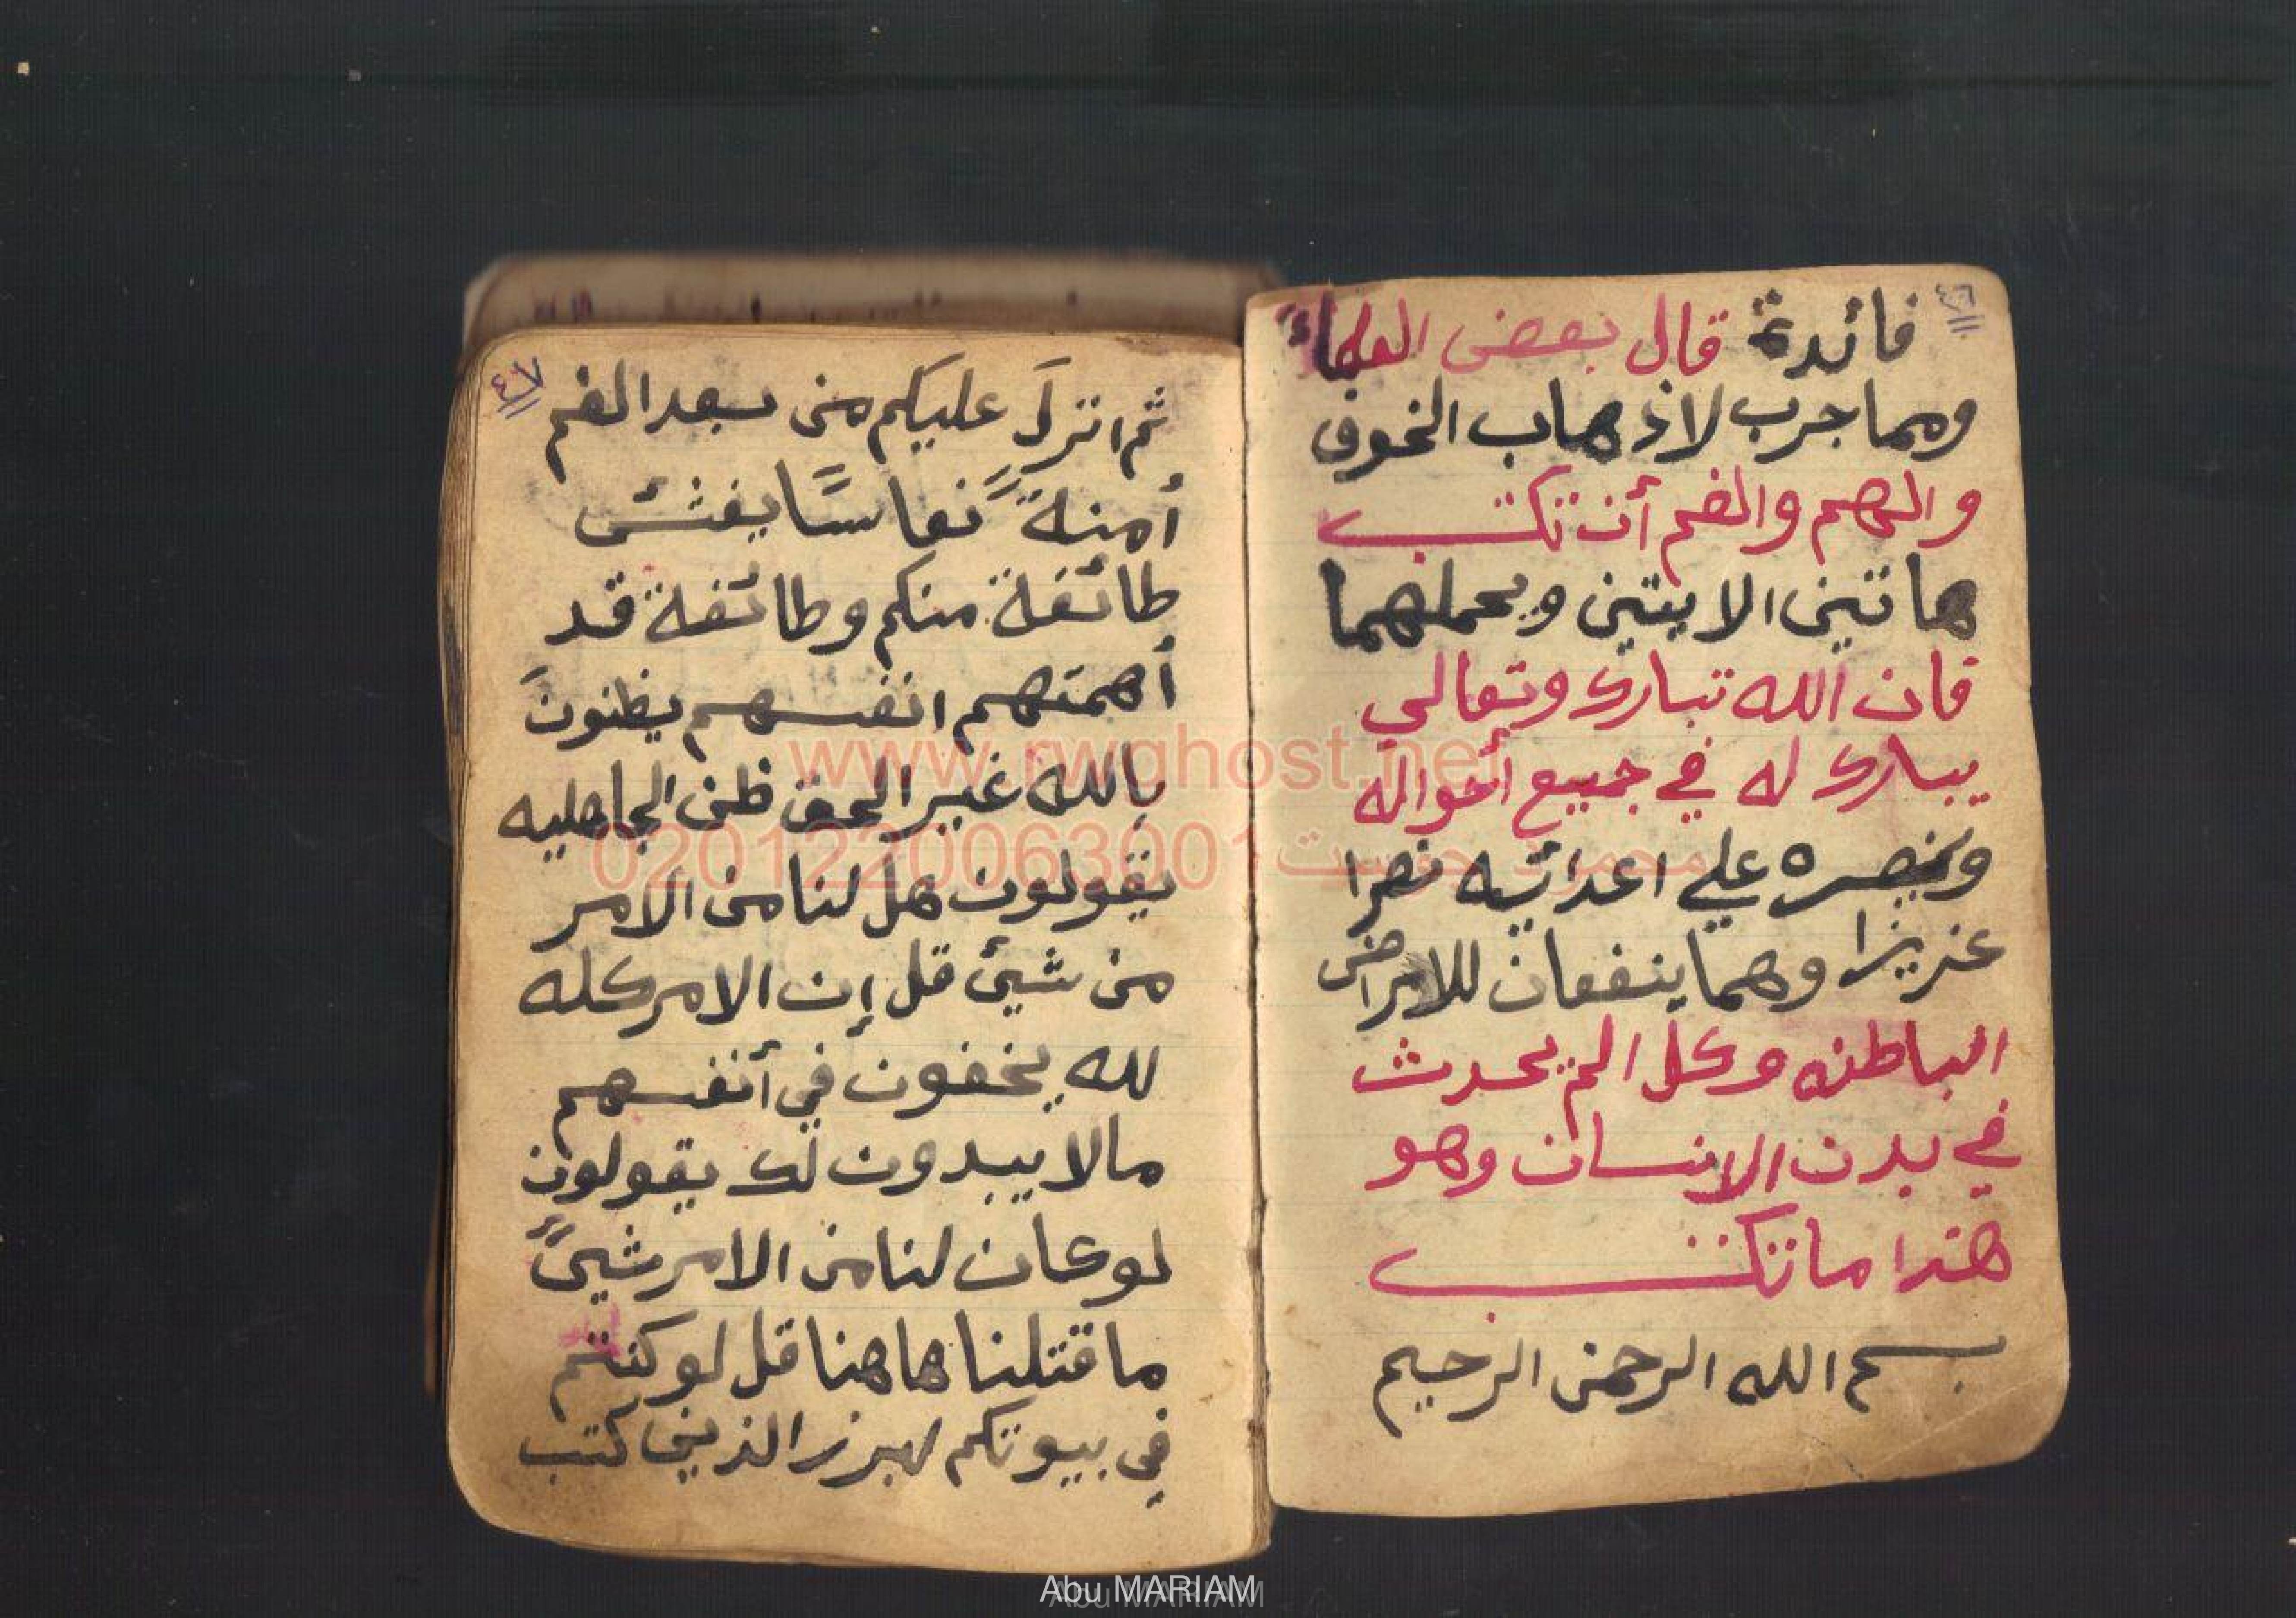 ٤٦
فائدة قال بعض العلماء
ومما جرب لاذهاب الخوف
والهم والغم أن تكتب
هاتين الايتين ويحملهما
فان الله تبارك وتعالي
يبارك له في جميع أحواله
وينصره علي اعدائيه نصرا
عزيزا وهما ينفعان للامراض
الباطنه وكل الم يحدث
في بدن الانسان وهو
هذا ما تكتب
بسم الله الرحمن الرحيم
٤٧
ثم انزلَ عليكم من بعد الغم
أمنةً نعاسًا يغشى
طائفة منكم وطائفة قد
أهمتهم انفسهم يظنونَ
بالله غير الحق ظن الجاهليه
يقولون هل لنا من الامر
من شيئ قل إن الامر كله
لله يخفون في أنفسهم
مالا يبدون لك يقولون
لو كان لنا من الامر شيئً
ما قتلنا هاهنا قل لو كنتم
في بيوتكم لبرز الذين كتب
www.rwghost.net
0201222006300 محمود جوست
Abu MARIAM